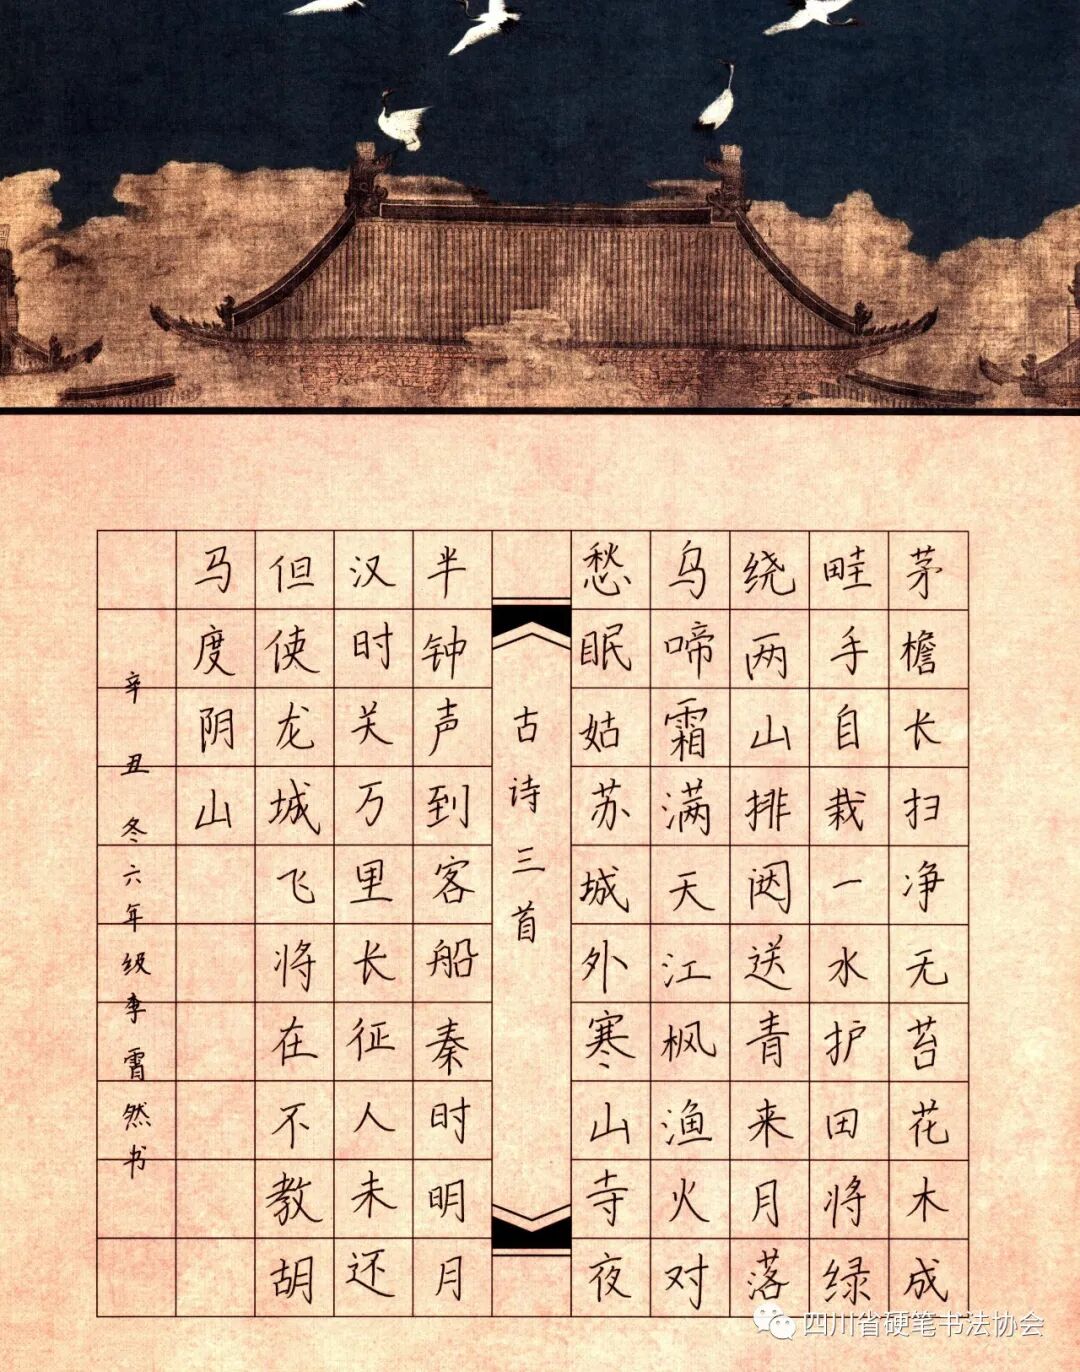 茅檐长扫净无苔花木成
畦手自栽一水护田将绿
绕两山排闼送青来月落
乌啼霜满天江枫渔火对
愁眠姑苏城外寒山寺夜
古诗三首
半钟声到客船秦时明月
汉时关万里长征人未还
但使龙城飞将在不教胡
马度阴山
辛丑冬六年级李霄然书
四川省硬笔书法协会